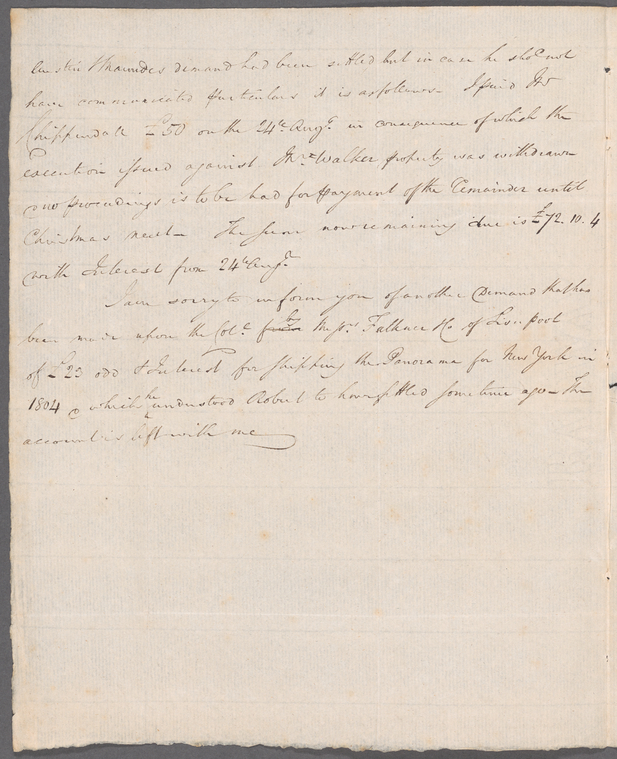 demand had been settled but in case he sho.d not
have communicated particulars it is as follows - I paid Mr
Chippendall £50 on the 24th Augt. in consequence of which the
Execution issued against Mr. Walker property was withdrawn
& no proceedings is to be had for payment of the Remainder until
Christmas next - The sum now remaining due is £72.10.4
with Interest from 24th Augt.
I am sorry to inform you of another Demand that has
been made upon the Col.l by Mess.rs Falkner &Co of Liverpool
of £23 odd & Interest for shipping the Panorama for New York in
1804 & which he understood Robert to have settled some time ago - The
account is left with me